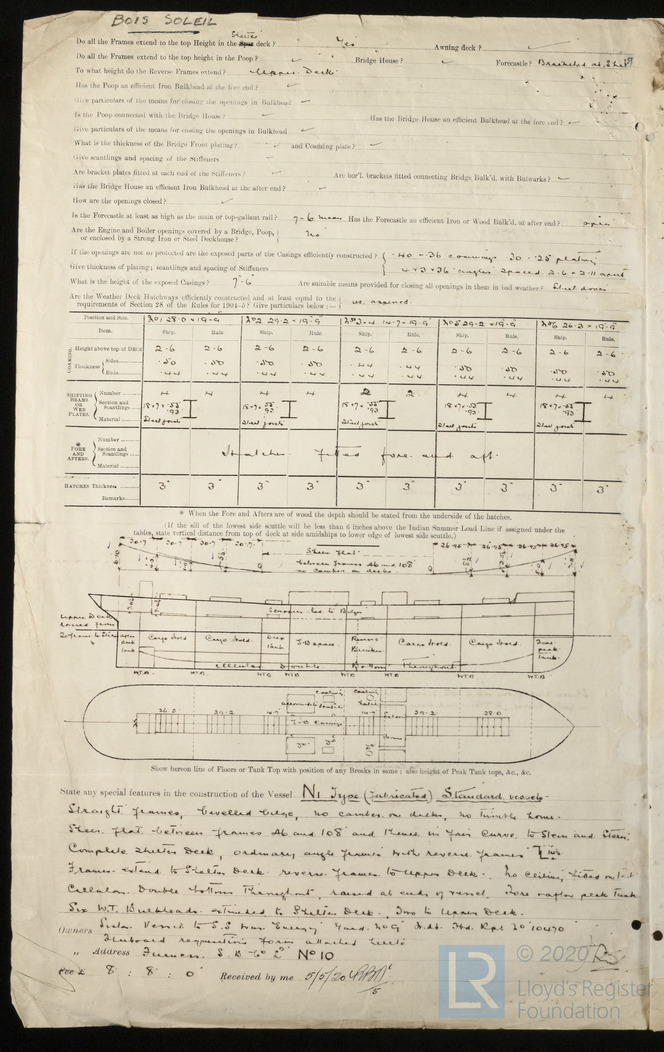 BOIS SOLEIL
Do all the Frames extend to the top Height in the Shelter deck? Yes Awning deck?
Do all the Frames extend to the top height in the Poop? Bridge House? Forecastle? Bracketed at Shel
To what height do the Reverse Frames extend? Upper Deck
Has the Poop an efficient Iron Bulkhead at the fore end?
Give particulars of the means for closing the openings in Bulkhead
Is the Poop connected with the Bridge House? Has the Bridge House an efficient Bulkhead at the fore end?
Give particulars of the means for closing the openings in Bulkhead
What is the thickness of the Bridge Front plating? and Coaming plate?
Give scantlings and spacing of the Stiffeners
Are bracket plates fitted at each end of the Stiffeners? Are hor'l. brackets fitted connecting Bridge Bulk'd. with Bulwarks?
Has the Bridge House an efficient Iron Bulkhead at the after end?
How are the openings closed?
Is the Forecastle at least as high as the main or top-gallant rail? 7-6 mean Has the Forecastle an efficient Iron or Wood Bulk'd, at after end? open
Are the Engine and Boiler openings covered by a Bridge, Poop, or enclosed by a Strong Iron or Steel Deckhouse? No
If the openings are not so protected are the exposed parts of the Casings efficiently constructed? .40 & .36 coamings .30 & .25 plating
Give thickness of plating; scantlings and spacing of Stiffeners 4x3x36 angles spaced 2-6 & 2-11 apart
What is the height of the exposed Casings? 7-6 Are suitable means provided for closing all openings in them in bad weather? Steel doors
Are the Weather Deck Hatchways efficiently constructed and at least equal to the requirements of Section 28 of the Rules for 1904-5? Give particulars below:—
Position and Size. No1 28-0 x 19-9 No2 29-2 x 19-9 No3-4 14-7 x 19-9 No5 29-2 x 19-9 No6 26-3 x 19-9
Item. Ship. Rule. Ship. Rule. Ship. Rule. Ship. Rule. Ship. Rule.
COAMING. Height above top of DECK 2-6 2-6 2-6 2-6 2-6 2-6 2-6 2-6 2-6 2-6
Thickness Sides .50 .50 .50 .50 .50 .50 .50 .50 .50 .50
Ends .44 .44 .44 .44 .44 .44 .44 .44 .44 .44
SHIFTING BEAMS OR WEB PLATES. Number 4 4 4 4 2 2 4 4 4 4
Section and Scantlings
Material
* FORE AND AFTERS. Number
Section and Scantlings Hatches fitted fore and aft.
Material
HATCHES Thickness 3" 3" 3" 3" 3" 3" 3" 3" 3" 3"
Remarks
* When the Fore and Afters are of wood the depth should be stated from the underside of the hatches.
(If the sill of the lowest side scuttle will be less than 6 inches above the Indian Summer Load Line if assigned under the
tables, state vertical distance from top of deck at side amidships to lower edge of lowest side scuttle.)
30-7 30-7 30-7 Sheer flat 26-95 26-95 26-95 26-95
between frames 46 and 108
no camber on decks
Upper Deck
Cargo Hold. Cargo Hold. Deep Tank Reserve Bunker Cargo Hold. Cargo Hold. Fore peak Tank.
Cellular Double Bottom Throughout
W.T.B. W.T.B. W.T.B. W.T.B. W.T.B. W.T.B. W.T.B.
26-3 29-2 14-7 14-7 29-2 28-0
Show hereon line of Floors or Tank Top with position of any Breaks in same; also height of Peak Tank tops, &c., &c.
State any special features in the construction of the Vessel N1 Type (fabricated) Standard vessels
Straight frames, bevelled bilge, no camber on decks, no tumble home.
Sheer flat between frames 46 and 108 and thence in fair curve to Stem and Stern.
Complete Shelter Deck, ordinary angle frames with reverse frames
Frames extend to Shelter Deck reverse frames to Upper Deck. No ceiling fitted
Cellular Double bottom throughout, raised at ends of vessel. Fore & after peak tank
Six W.T. Bulkheads extended to Shelter Deck. Two to Upper Deck.
Owners Sister Vessel to S.S War Energy Yard No 9 Rpt No 10470
Freeboard requisition form attached hereto
" Address Furness S.B Co Ld No 10
Fee £ 8 : 8 : 0 Received by me 5/5/20
© 2020
LR
Lloyd's Register
Foundation